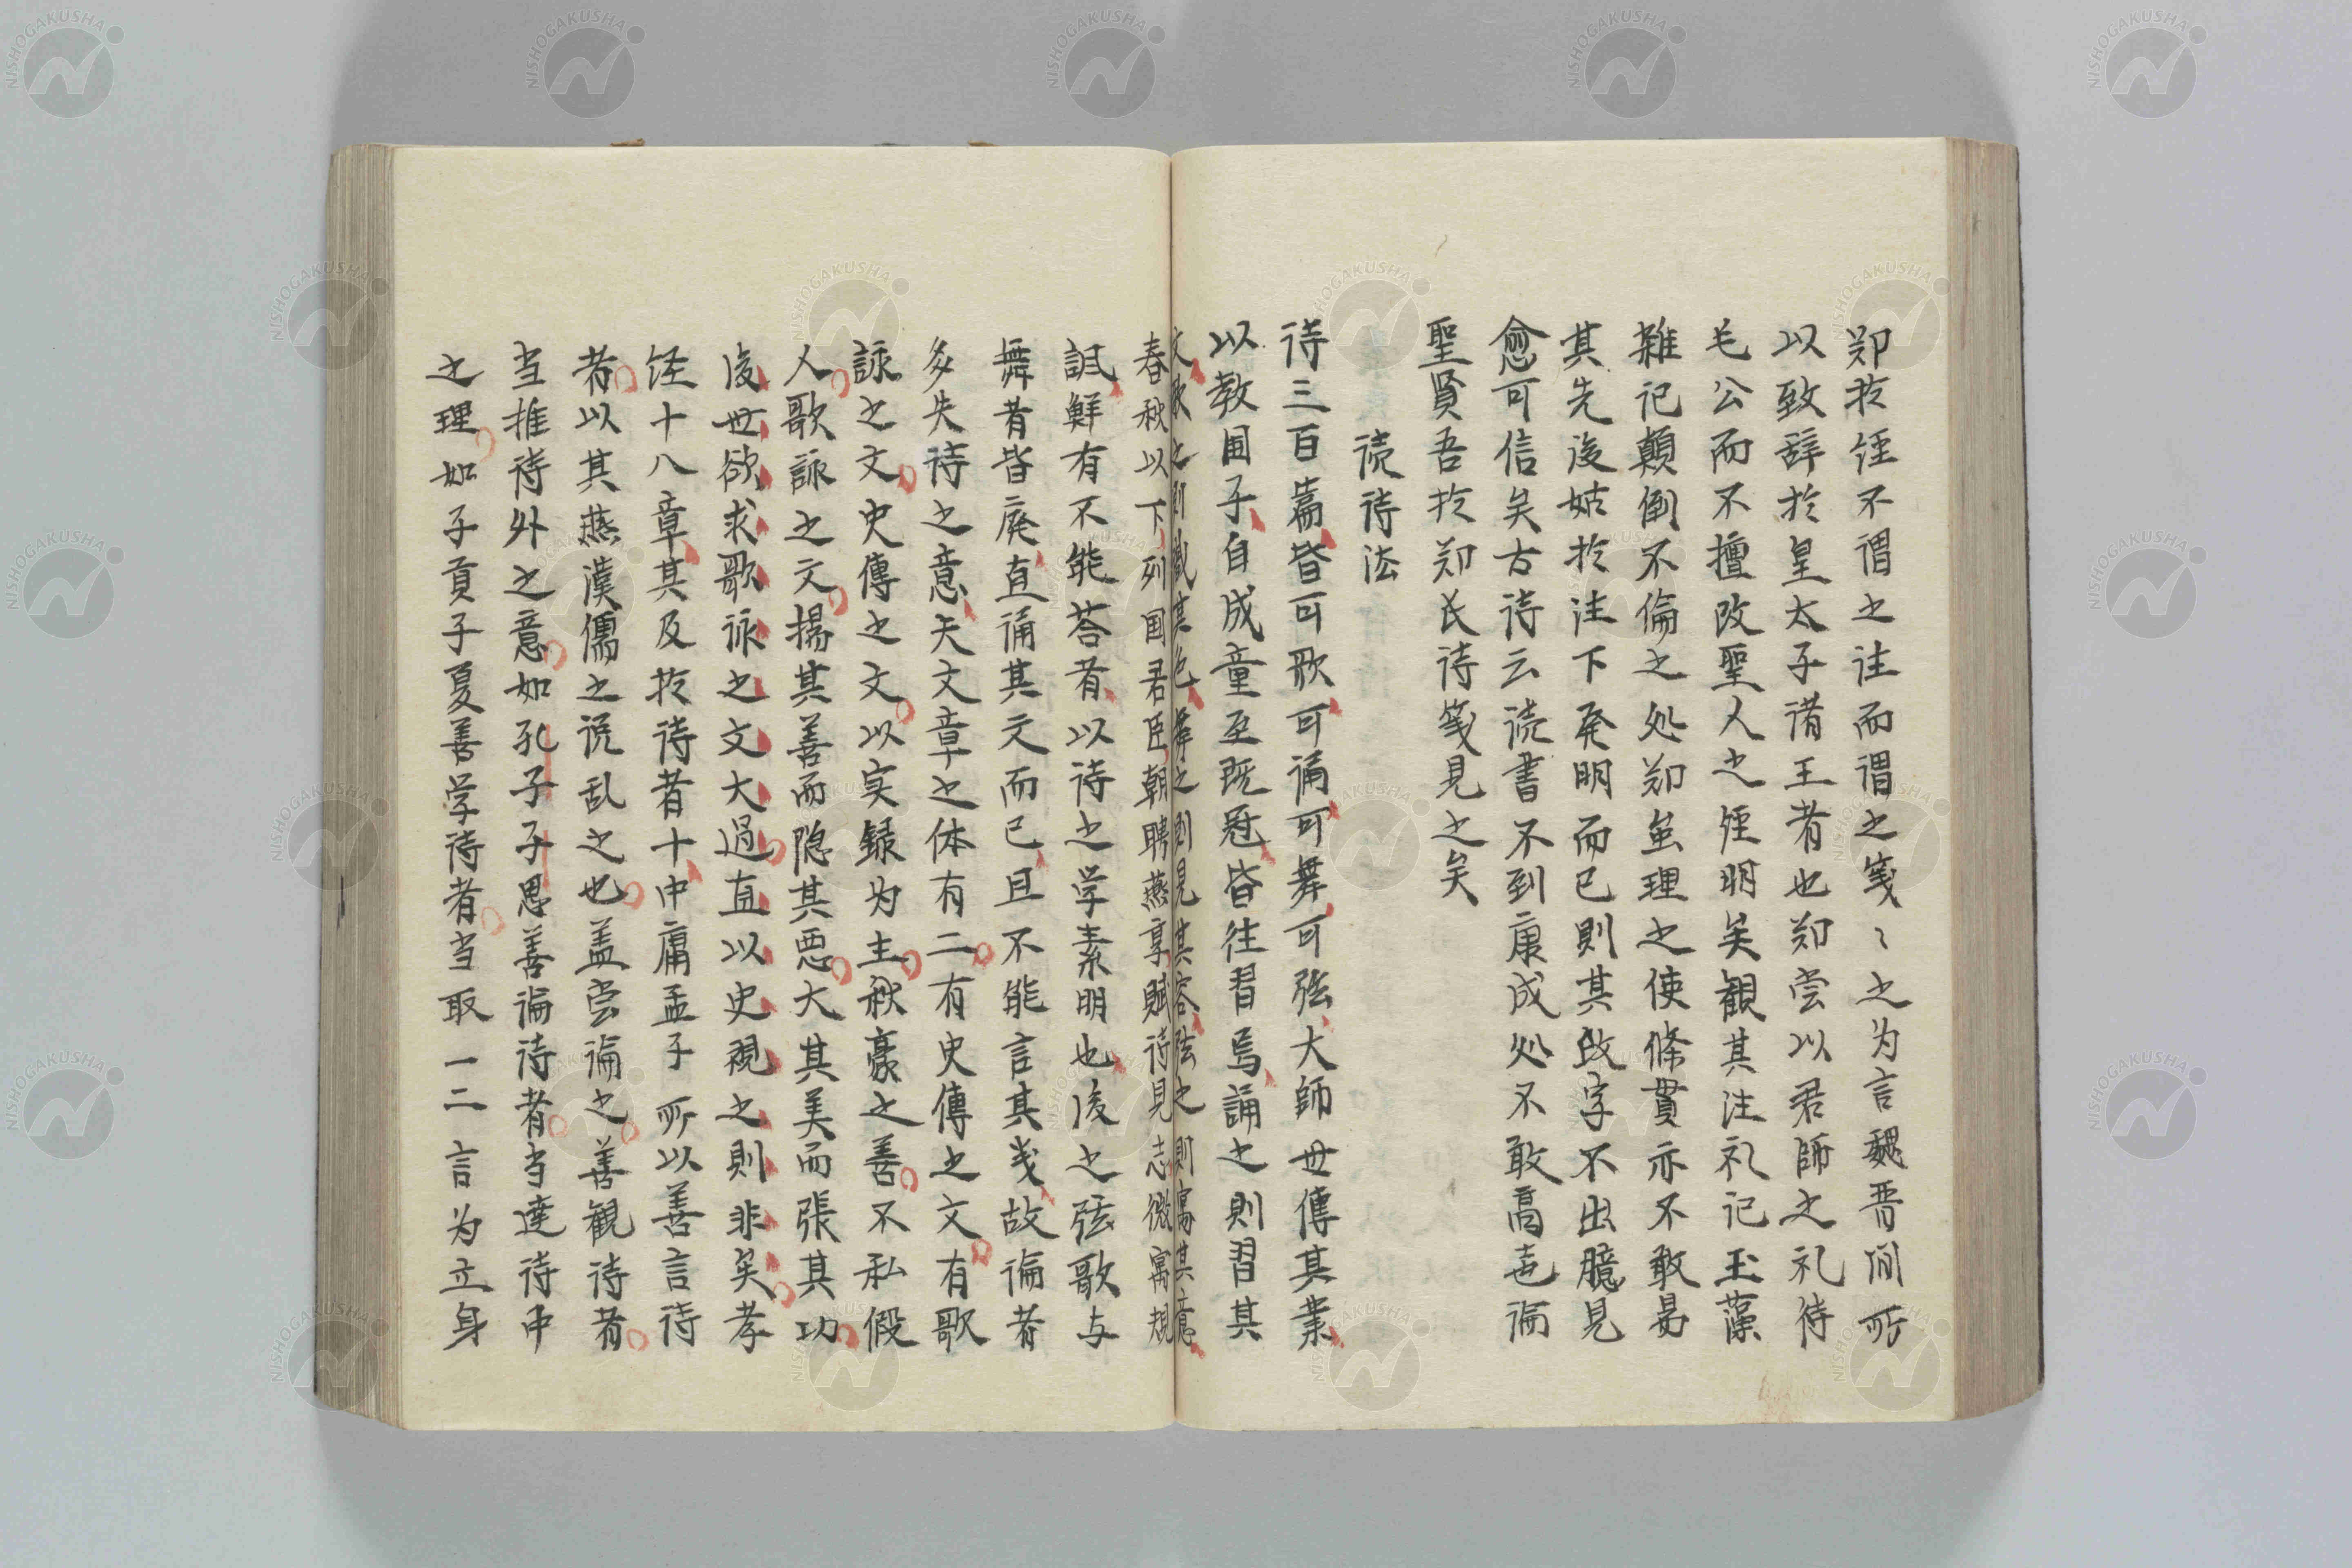 郑於経不謂之注而謂之箋〻之为言魏晋间所
以致辞於皇太子渚王者也郑尝以君師之礼待
毛公而不擅改聖人之経明矣観其注礼记玉藻
雜记顛倒不倫之处郑虽理之使條貫亦不敢易
其先後姑於注下発明而已則其改字不出臆見
愈可信矣古诗云读書不到康成处不敢高声论
聖賢吾於郑氏诗箋見之矣
读诗法
诗三百篇皆可歌可诵可舞可弦大師世傳其業
以教国子自成童至既冠皆往習焉誦之則習其
文歌之則識其色舞之則見其容弦之則寓其意
春秋以下列国君臣朝聘燕享賦诗見志微寓規
諷鮮有不能荅者以诗之学素明也後之弦歌与
舞者皆廃直诵其文而已且不能言其義故论者
多失诗之意夫文章之体有二有史傳之文有歌
詠之文史傳之文以实録为主秋豪之善不私假
人歌詠之文揚其善而隐其悪大其美而張其功
後世欲求歌詠之文大過直以史視之則非矣孝
経十八章其及於诗者十中庸孟子所以善言诗
者以其燕漢儒之说乱之也盖尝论之善観诗者
当推诗外之意如孔子子思善论诗者当達诗中
之理如子貢子夏善学诗者当取一二言为立身
NISHOGAKUSHA